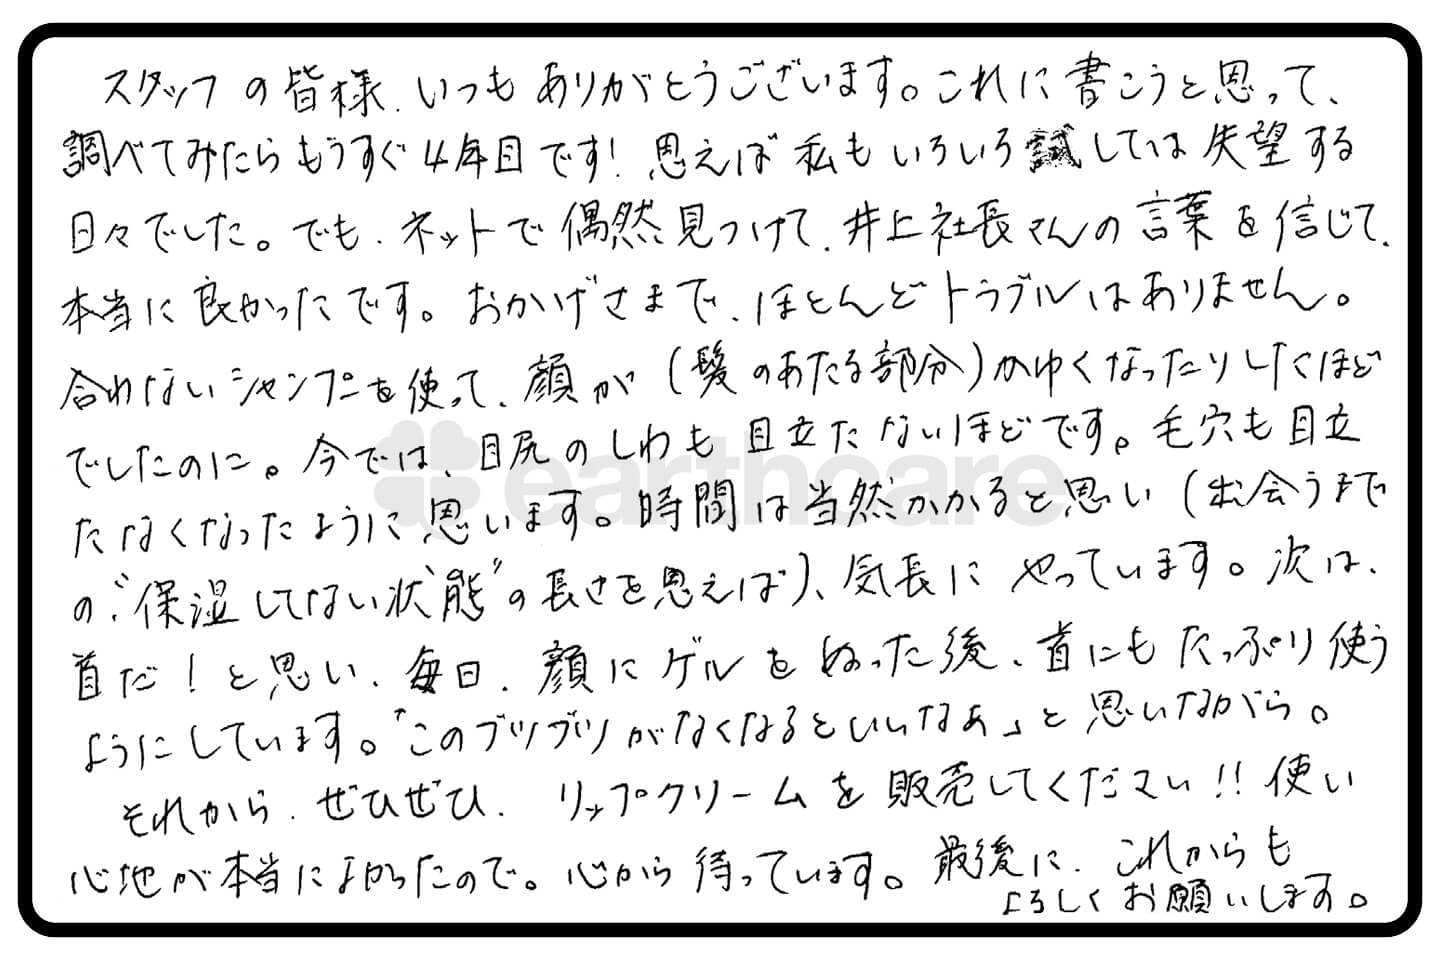 スタッフの皆様、いつもありがとうございます。これに書こうと思って、
調べてみたらもうすぐ4年目です！思えば私もいろいろ試しては失望する
日々でした。でも、ネットで偶然見つけて、井上社長さんの言葉を信じて、
本当に良かったです。おかげさまで、ほとんどトラブルはありません。
合わないシャンプーを使って、顔が（髪のあたる部分）かゆくなったりしたほど
でしたのに。今では、目尻のしわも目立たないほどです。毛穴も目立
たなくなったように思います。時間は当然かかると思い（出会うまで
の“保湿してない状態”の長さを思えば）、気長にやっています。次は、
首だ！と思い、毎日、顔にゲルをぬった後、首にもたっぷり使う
ようにしています。「このブツブツがなくなるといいなぁ」と思いながら。
それから、ぜひぜひ、リップクリームを販売してください！！使い
心地が本当によかったので。心から待っています。最後に、これからも
よろしくお願いします。
earthcare